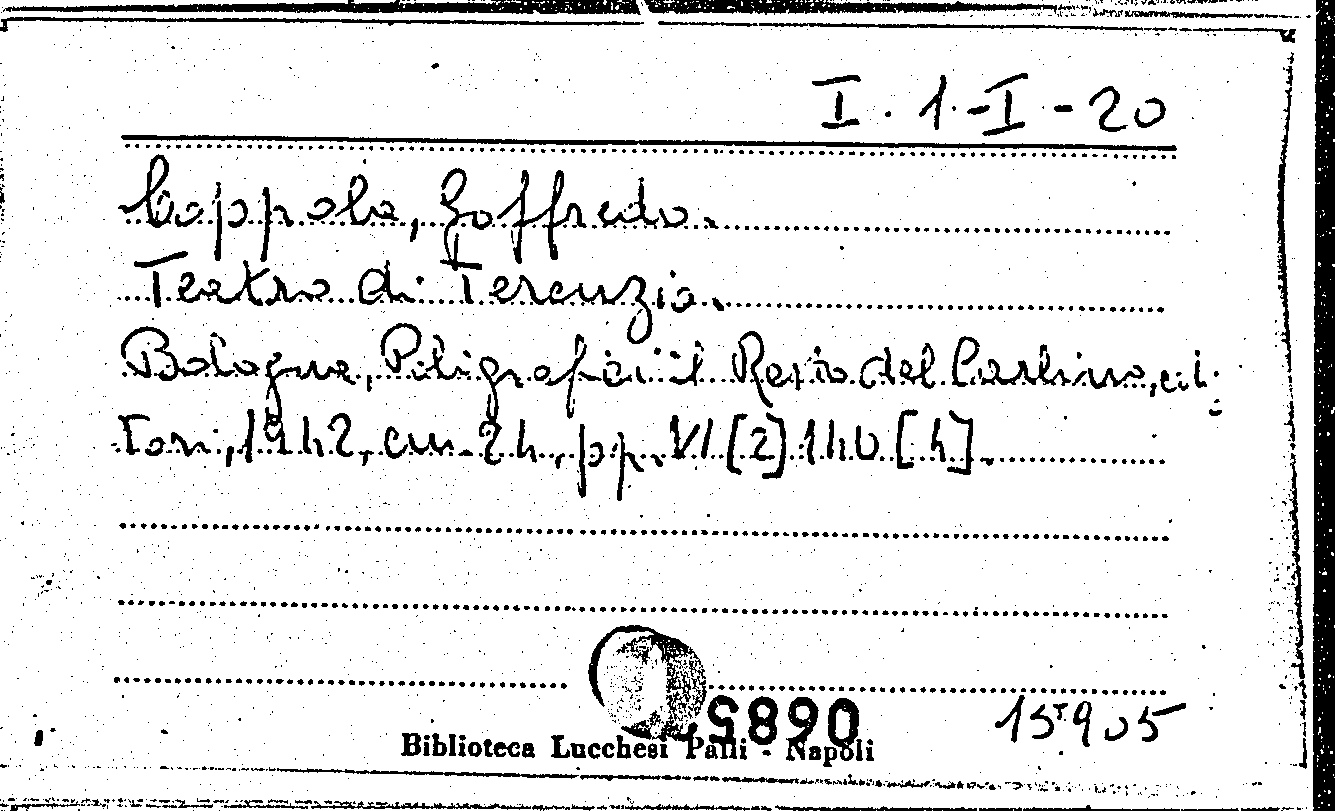 I. 1-I-20
Coppola, Goffredo.
Teatro di Terenzio.
Bologna, Poligrafici il Resto del Carlino, edi=
tori, 1942, cm. 24, pp. VI [2] 140 [4].
15905
Biblioteca Lucchesi Palli - Napoli